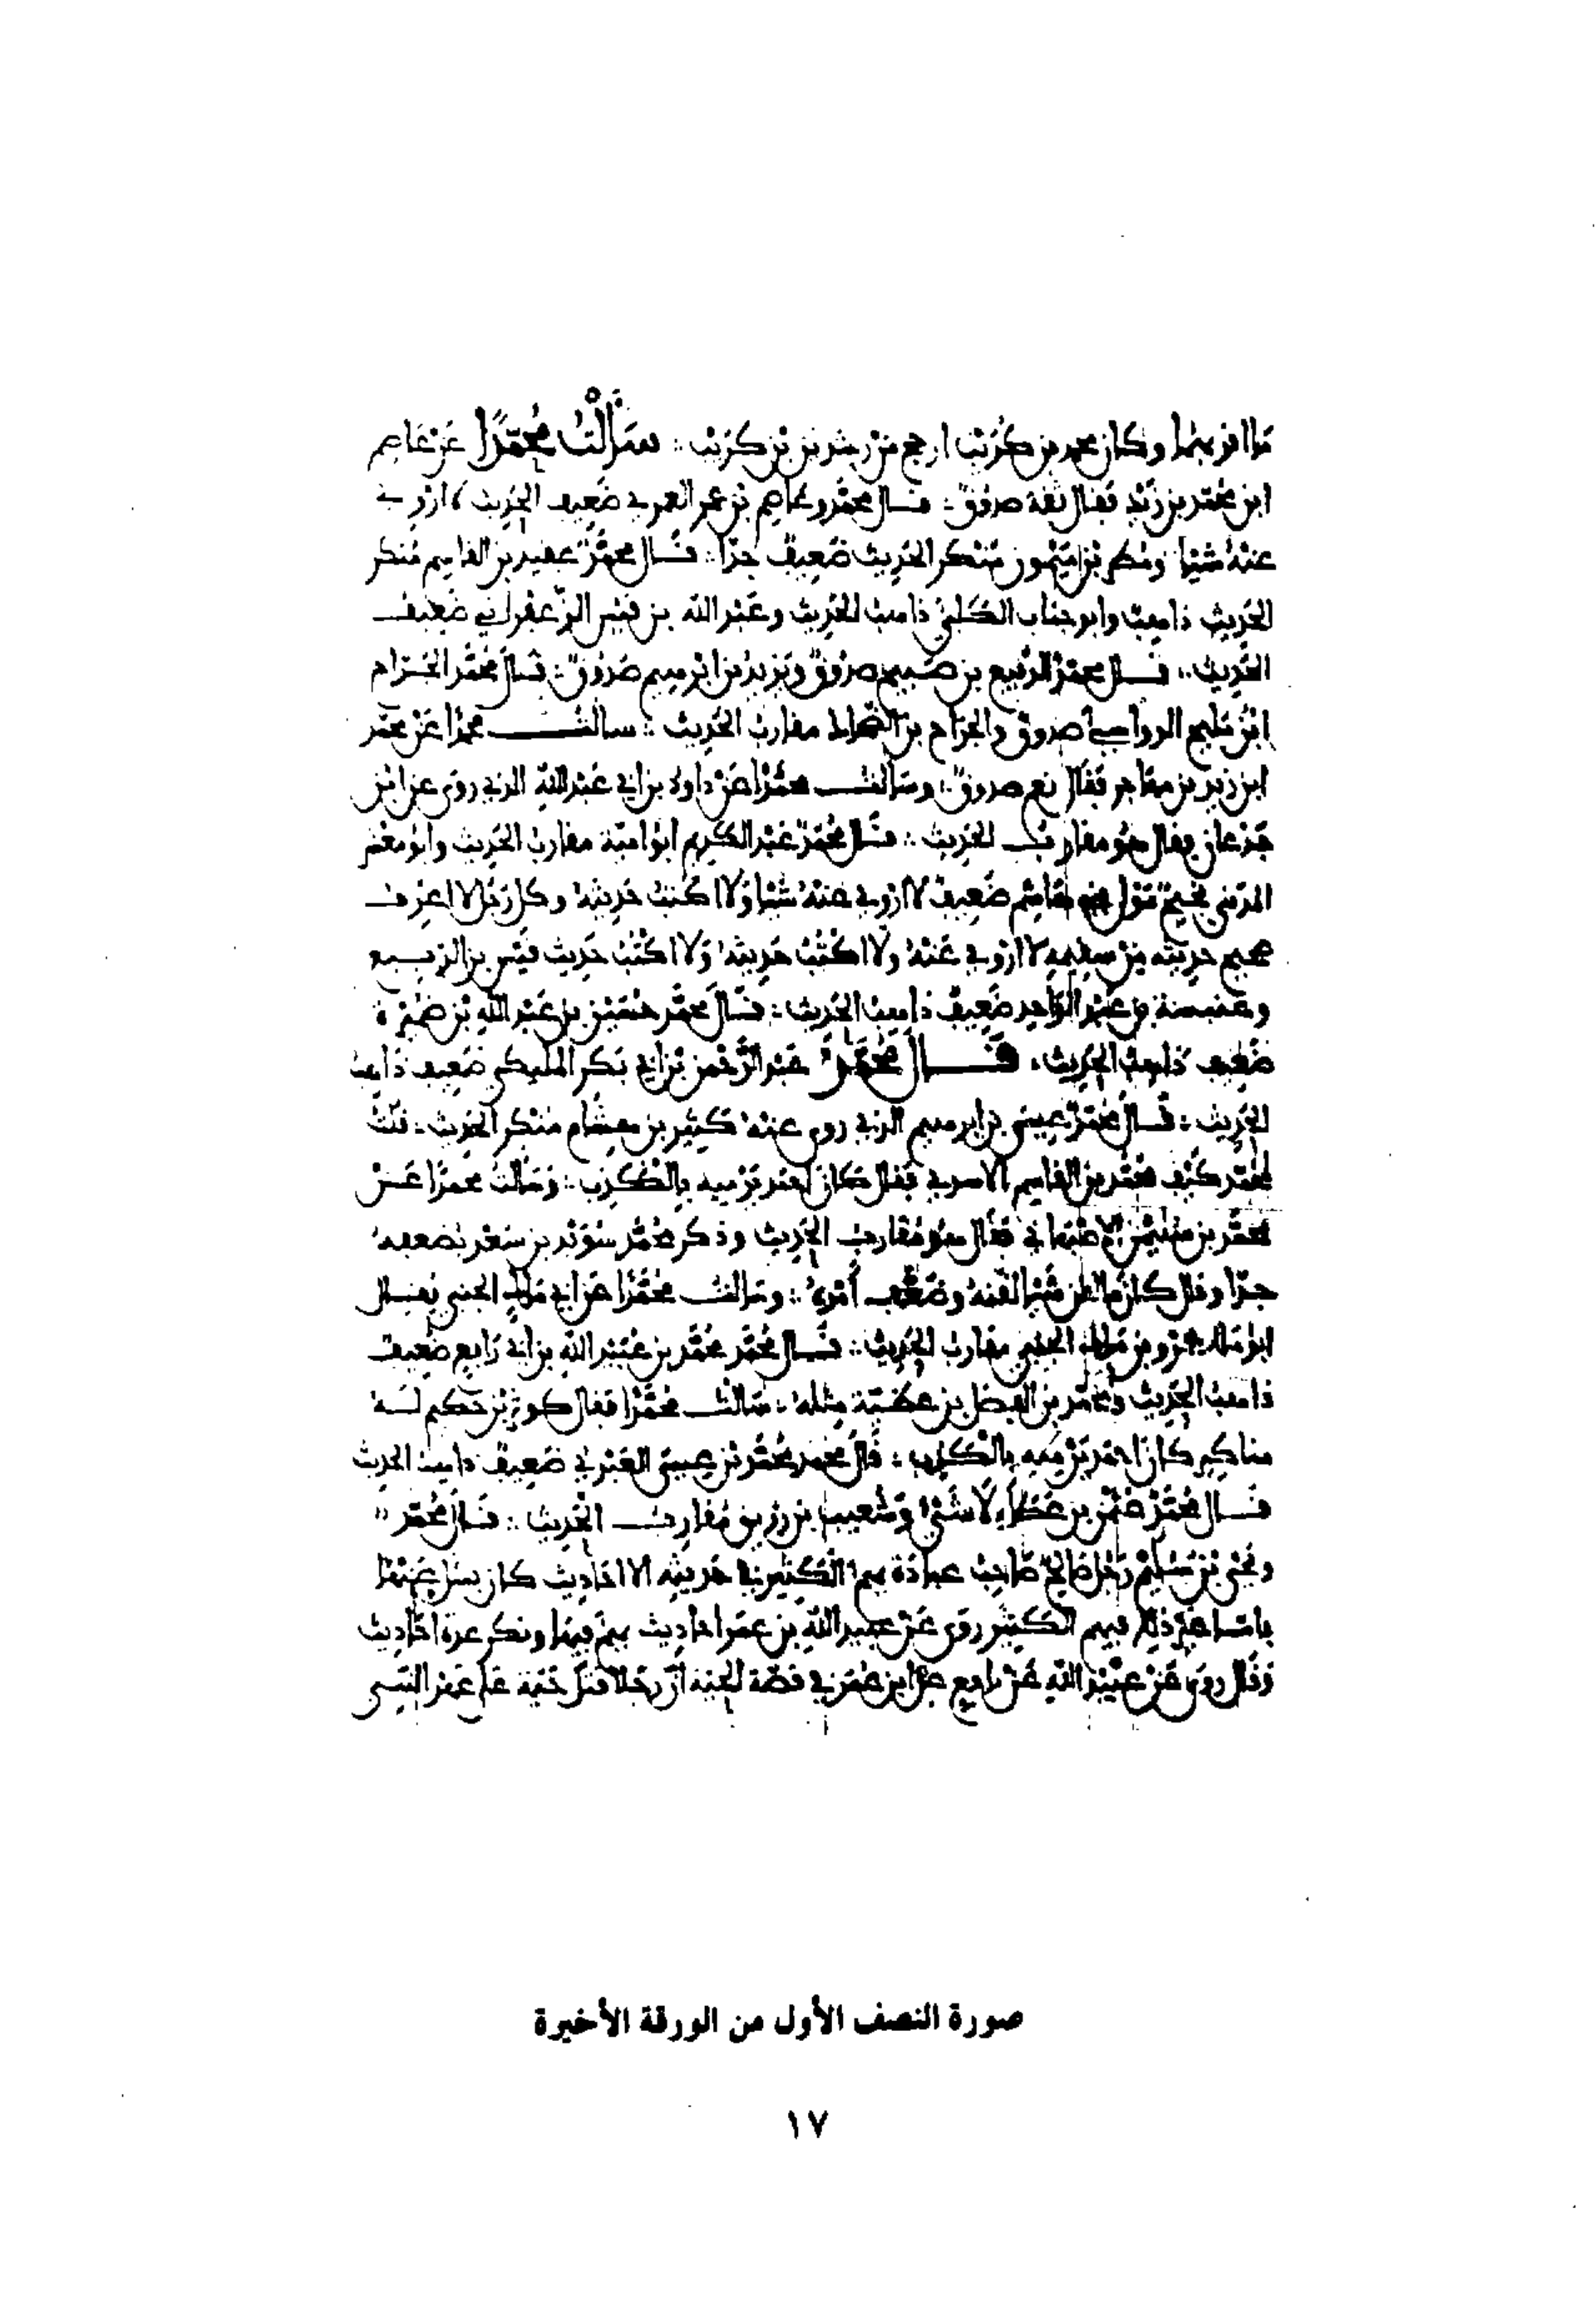 ما اقربهما وكان محمد بن كريب ارجح من رشدين بن كريب سألت محمدا عن عاصم
ابن محمد بن زيد فقال ثقة صدوق قال محمد وعاصم بن عمر العمري ضعيف الحديث لا اروي
عنه شيئا ومطر بن ميمون منكر الحديث ضعيف جدا قال محمد عفير بن القاسم منكر
الحديث ذاهب وابو جناب الكلبي ذاهب الحديث وعبد الله بن قيس الزعفراني ضعيف
الحديث قال محمد الربيع بن صبيح صدوق ويزيد بن ابرهيم صدوق قال محمد الجراح
ابن مليح الرواسي صدوق والجراح بن الضحاك مقارب الحديث سالت محمدا عن محمد
ابن زيد بن مهاجر فقال نعم صدوق وسالت محمدا عن داود بن ابي عبد الله الذي روى عن ابن
جدعان فقال هو مقارب الحديث قال محمد عبد الكريم ابو امية مقارب الحديث وابو معشر
المدني نجيح مولى بني هاشم ضعيف لا اروي عنه شيئا ولا اكتب حديثه وكل رجل لا اعرف
صحيح حديثه من سقيمه لا اروي عنه ولا اكتب حديثه ولا اكتب حديث قيس بن الربيع
وعنبسة بن عبد الواحد ضعيف ذاهب الحديث قال محمد حسين بن عبد الله بن ضميرة
ضعيف ذاهب الحديث قال محمد عبد الرحمن بن ابي بكر المليكي ضعيف ذاهب
الحديث قال محمد عيسى بن ابرهيم الذي روى عنه كثير بن هشام منكر الحديث قلت
لمحمد كيف محمد بن القاسم الاسدي فقال كان احمد يرميه بالكذب وسالت محمدا عن
محمد بن سليمن الاصبهاني فقال هو مقارب الحديث وذكر محمد سويد بن سعيد فضعفه
جدا وقال كان ما لقن شيئا لقنه وضعف امره وسالت محمدا عن ابي مالك الجنبي فقال
ابو مالك عمرو بن هاشم الجنبي مقارب الحديث قال محمد محمد بن عبيد الله بن ابي رافع ضعيف
ذاهب الحديث ومحمد بن الفضل بن عطية مثله سالت محمدا فقال كوثر بن حكيم له
مناكير كان احمد يرميه بالكذب قال محمد محمد بن عيسى العبدي ضعيف ذاهب الحديث
قال محمد عثمن بن عطاء لا شيء وشعيب بن رزيق مقارب الحديث قال محمد
ويحيى بن سليم رجل صالح صاحب عبادة يهم الكثير في حديثه الا احاديث كان يسل عنها
فاما غير ذلك فيهم الكثير روى عن عبيد الله بن عمر احاديث يهم فيها وذكر عدة احاديث
وقال روى عن عبيد الله عن نافع عن ابن عمر في قصة الحية ان رجلا قتل حية على عهد النبي
صورة النصف الأول من الورقة الأخيرة
١٧